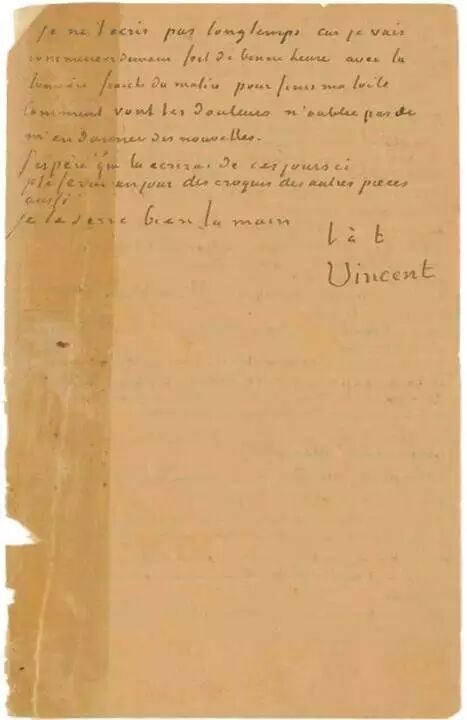 Je ne t'ecris pas longtemps car je vais
commencer demain fort de bonne heure avec la
lumière fraiche du matin pour finir ma toile
Comment vont les douleurs n'oublie pas de
m'en donner des nouvelles.
J'espère que tu ecriras de ces jours ci
je te ferai un jour des croquis des autres pieces
aussi
je te serre bien la main
t à t
Vincent